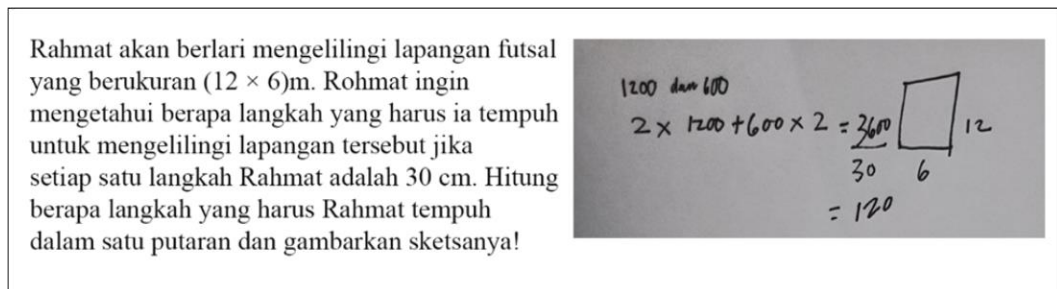 Rahmat akan berlari mengelilingi lapangan futsal
yang berukuran (12 × 6)m. Rohmat ingin
mengetahui berapa langkah yang harus ia tempuh
untuk mengelilingi lapangan tersebut jika
setiap satu langkah Rahmat adalah 30 cm. Hitung
berapa langkah yang harus Rahmat tempuh
dalam satu putaran dan gambarkan sketsanya!
1200 dan 600
2 × 1200 + 600 × 2 = 3600
30
= 120
12
6